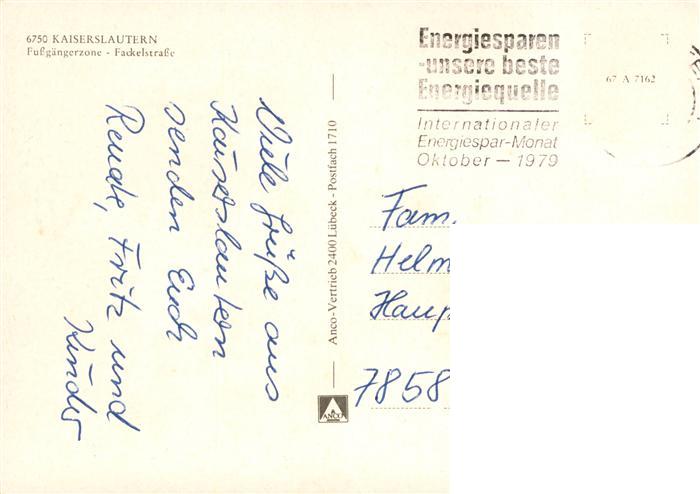 6750 KAISERSLAUTERN
Fußgängerzone - Fackelstraße
Viele Grüße aus
Kaiserslautern
senden Euch
Fritz und
Kinder
Anco-Vertrieb 2400 Lübeck - Postfach 1710
ANCO
Energiesparen
-unsere beste
Energiequelle
Internationaler
Energiespar-Monat
Oktober - 1979
67 A 7162
Fam.
Helm
Haup
7858